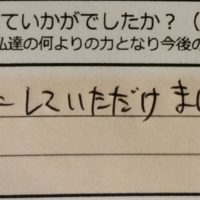 ていかがでしたか？（
私達の何よりの力となり今後の
にしていただけま